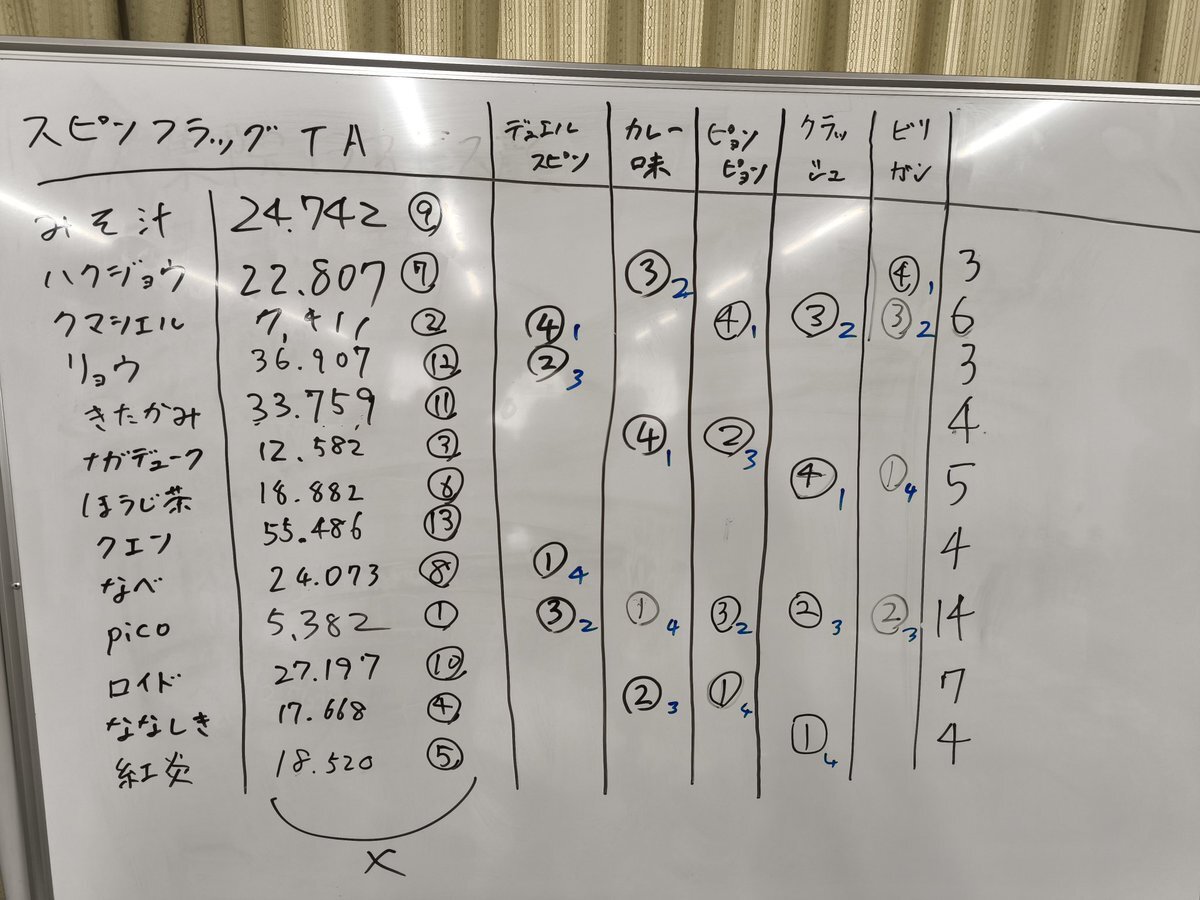 スピンフラッグTA デュエルスピン カレー味 ピョンピョン クラッシュ ビリガン
みそ汁 24.742 ⑨
ハクジョウ 22.807 ⑦ ③2 ④1 3
クマシエル ② ④1 ④1 ③2 ③2 6
リョウ 36.907 ⑫ ②3 3
きたかみ 33.759 ⑪
ナガデューク 12.582 ③ ④1 ②3 4
ほうじ茶 18.882 ⑥ ④1 ①4 5
クエン 55.486 ⑬
なべ 24.073 ⑧ ①4 4
pico 5.382 ① ③2 ①4 ③2 ②3 ②3 14
ロイド 27.197 ⑩
ななしき 17.668 ④ ②3 ①4 7
紅炎 18.520 ⑤ ①4 4
×